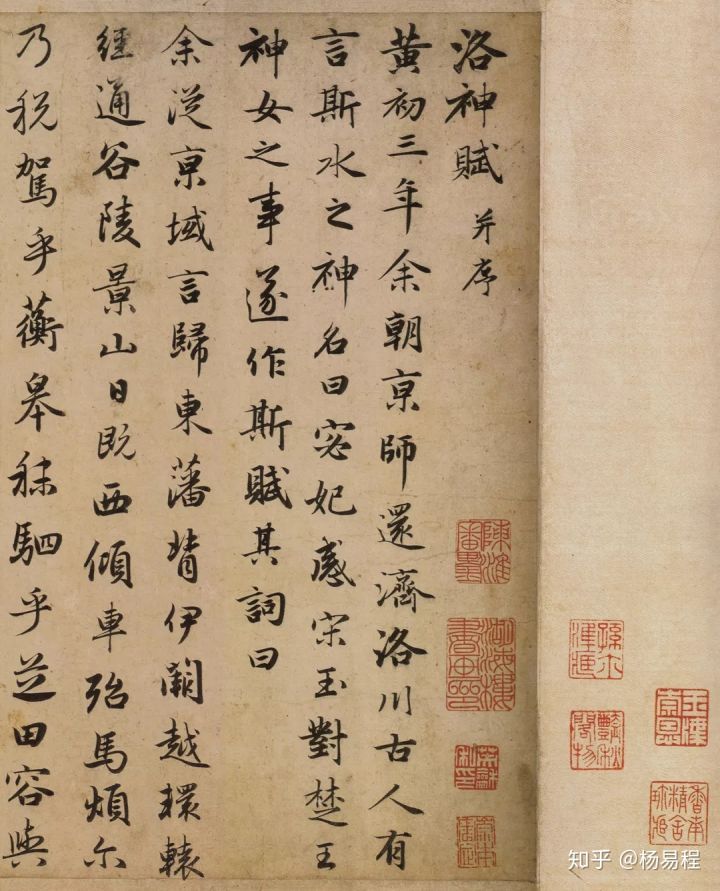 洛神賦 并序
黄初三年余朝京師還濟洛川古人有
言斯水之神名曰宓妃感宋玉對楚王
神女之事遂作斯賦其詞曰
余從京域言歸東藩背伊闕越轘轅
經通谷陵景山日既西傾車殆馬煩尓
乃税駕乎蘅皋秣駟乎芝田容與
知乎 @杨易程